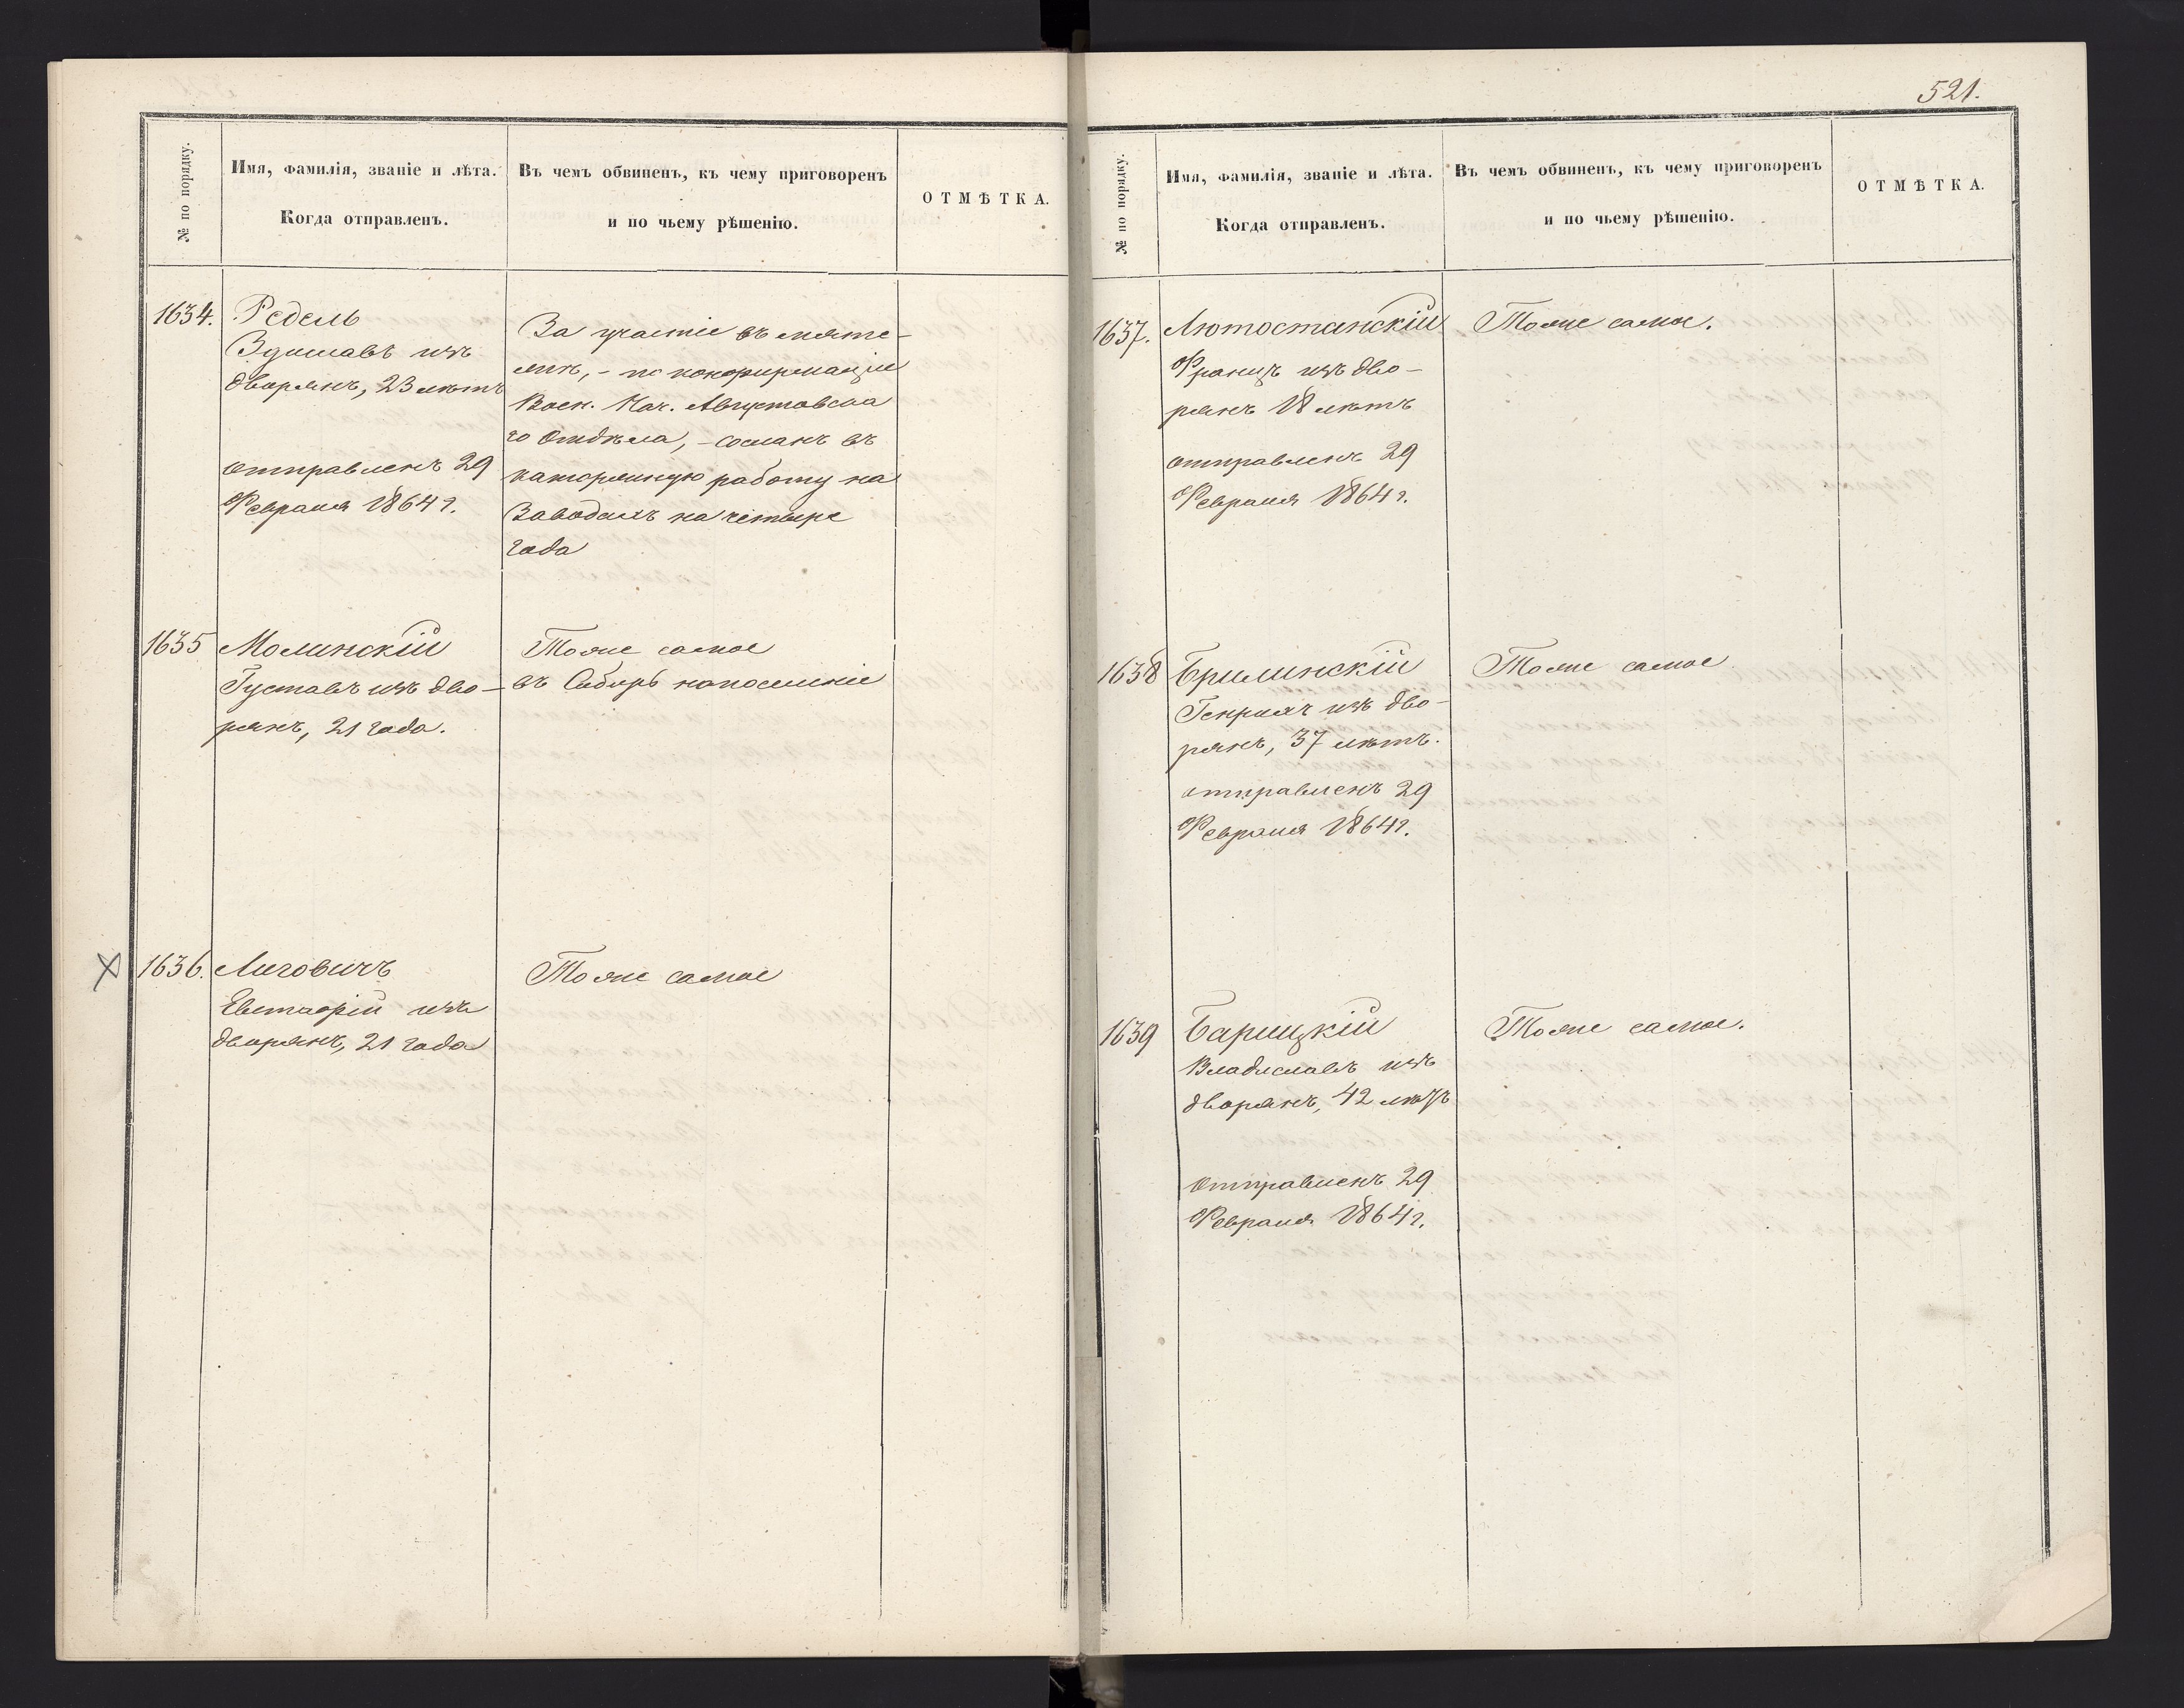 № по порядку.
Имя, фамилія, званіе и лѣта.
Когда отправленъ.
Въ чемъ обвиненъ, къ чему приговоренъ
и по чьему рѣшенію.
ОТМѢТКА.
1634.
Редель
Здиславъ изъ
дворянъ, 23 лѣтъ
отправленъ 29
Февраля 1864 г.
За участіе въ мяте-
жѣ, - по конфирмаціи
Воен. Нач. Августовска
го Отдѣла, - сосланъ въ
каторжную работу на
Заводахъ на четыре
года
1635
Молинскій
Густавъ изъ дво-
рянъ, 21 года.
Тоже самое
въ Сибирь напоселеніе
1636.
Личовичъ
Евстафій изъ
дворянъ, 21 года
Тоже самое
521.
№ по порядку.
Имя, фамилія, званіе и лѣта.
Когда отправленъ.
Въ чемъ обвиненъ, къ чему приговоренъ
и по чьему рѣшенію.
ОТМѢТКА.
1637.
Лютостанскій
Францъ изъ дво-
рянъ 18 лѣтъ
отправленъ 29
Февраля 1864 г.
Тоже самое.
1638
Брилинскій
Генрихъ изъ дво-
рянъ, 37 лѣтъ.
отправленъ 29
Февраля 1864 г.
Тоже самое
1639
Барицкій
Владиславъ изъ
дворянъ, 42 лѣтъ
отправленъ 29
Февраля 1864 г.
Тоже самое.